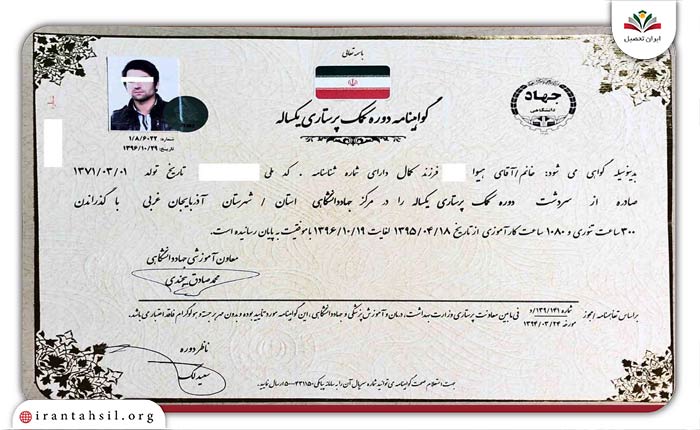 باسمه تعالی
ایران تحصیل
جهاد
دانشگاهی
گواهینامه دوره کمک پرستاری یکساله
شماره: ۱/۸/۶۰۲۲
تاریخ: ۱۳۹۶/۱۰/۲۹
بدینوسیله گواهی می شود: خانم/آقای هیوا فرزند کمال دارای شماره شناسنامه . کد ملی تاریخ تولد ۱۳۷۱/۰۳/۰۱
صادره از سردشت دوره کمک پرستاری یکساله را در مرکز جهاددانشگاهی استان / شهرستان آذربایجان غربی با گذراندن
۳۰۰ ساعت تئوری و ۱۰۸۰ ساعت کارآموزی از تاریخ ۱۳۹۵/۰۴/۱۸ لغایت ۱۳۹۶/۱۰/۱۹ با موفقیت به پایان رسانیده است.
معاون آموزشی جهاددانشگاهی
محمدصادق بیجندی
براساس تفاهمنامه / مجوز شماره ۱۳۹/۱۴۱/د مورخه ۱۳۹۴/۰۳/۲۴ فی مابین معاونت پرستاری وزارت بهداشت، درمان و آموزش پزشکی و جهاددانشگاهی، این گواهینامه مورد تایید بوده و بدون مهر برجسته و هولوگرام فاقد اعتبار می باشد.
ناظر دوره
سعید لک
جهت استعلام صحت گواهینامه می توانید شماره سریال آن را به سامانه پیامکی ۵۰۰۰۲۳۱۱۵۰ ارسال نمایید.
irantahsil.org